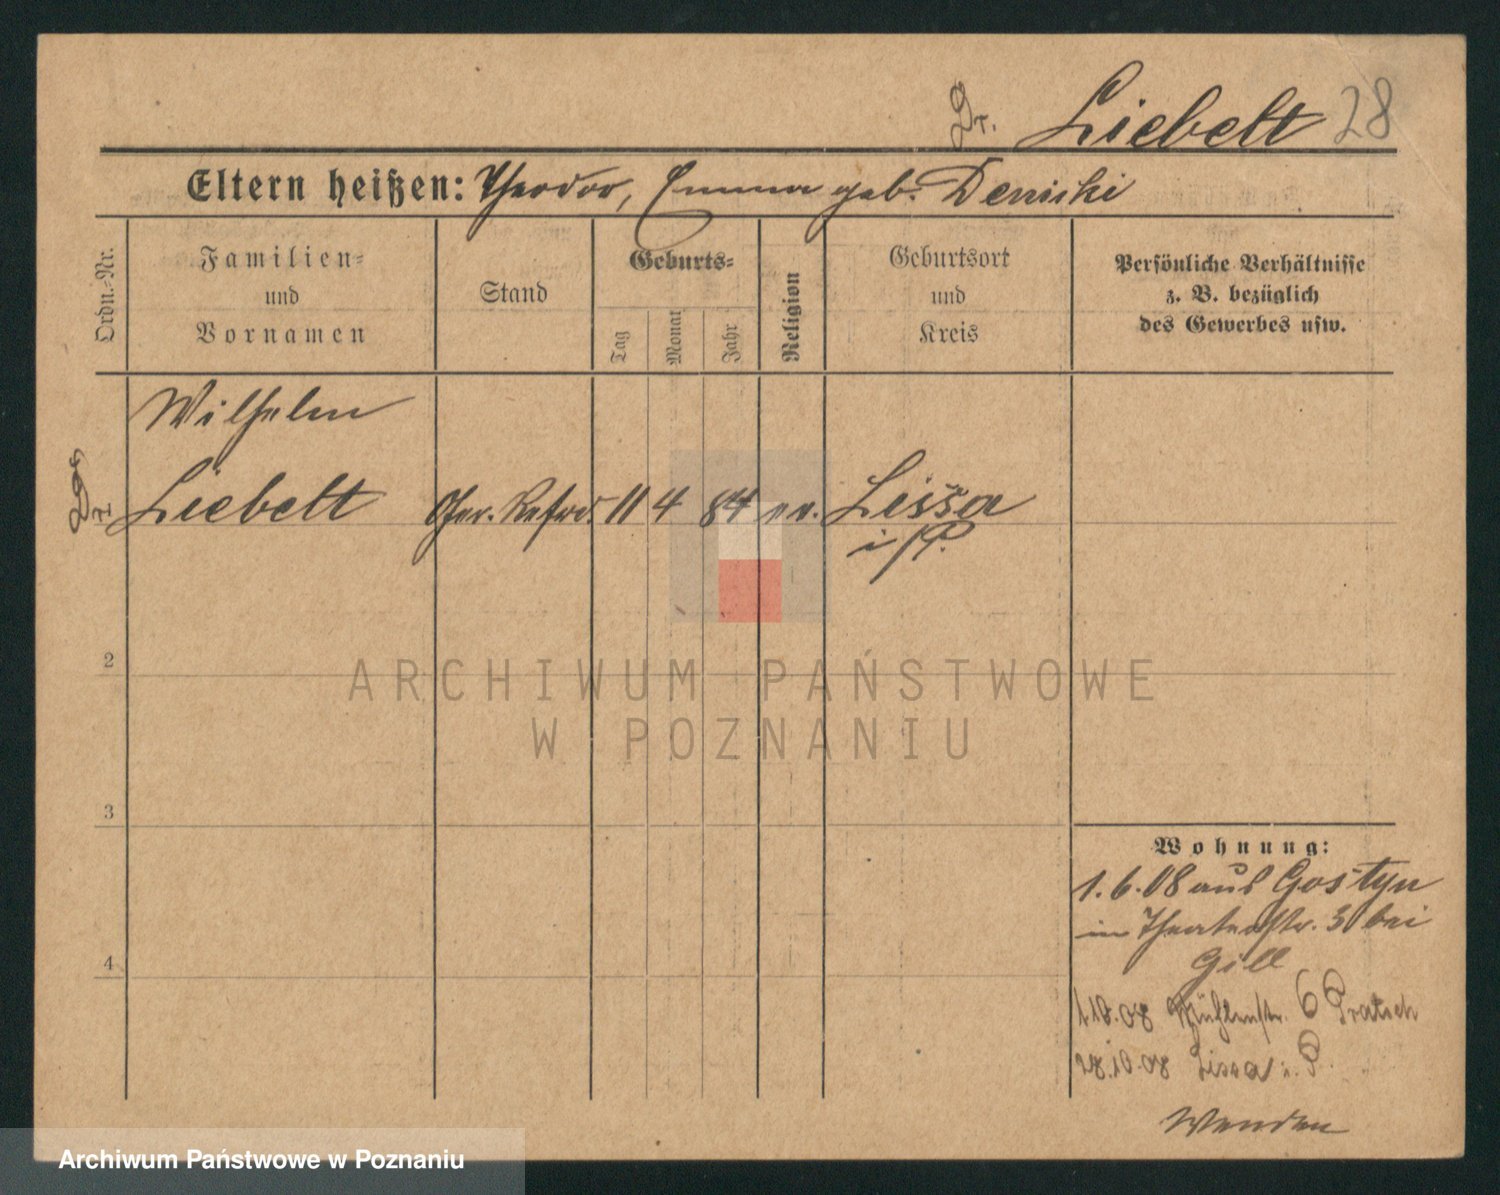 Dr. Liebelt 28
Eltern heißen: Theodor, Emma geb.
Ordn.-Nr.
Familien-
und
Vornamen
Stand
Geburts-
Tag
Monat
Jahr
Religion
Geburtsort
und
Kreis
Persönliche Verhältnisse
z. B. bezüglich
des Gewerbes usw.
Wilhelm
Dr. Liebelt Ger. Refrd. 11 4 84 ev. Lissa
i/P.
2
3
4
ARCHIWUM PAŃSTWOWE
W POZNANIU
Wohnung:
1.6.08 aus Gostyn
in Theaterstr. 3 bei
Gill
1.10.08 Mühlenstr. 6 Pratsch
28.10.08 Lissa i. P.
Wenden
Archiwum Państwowe w Poznaniu